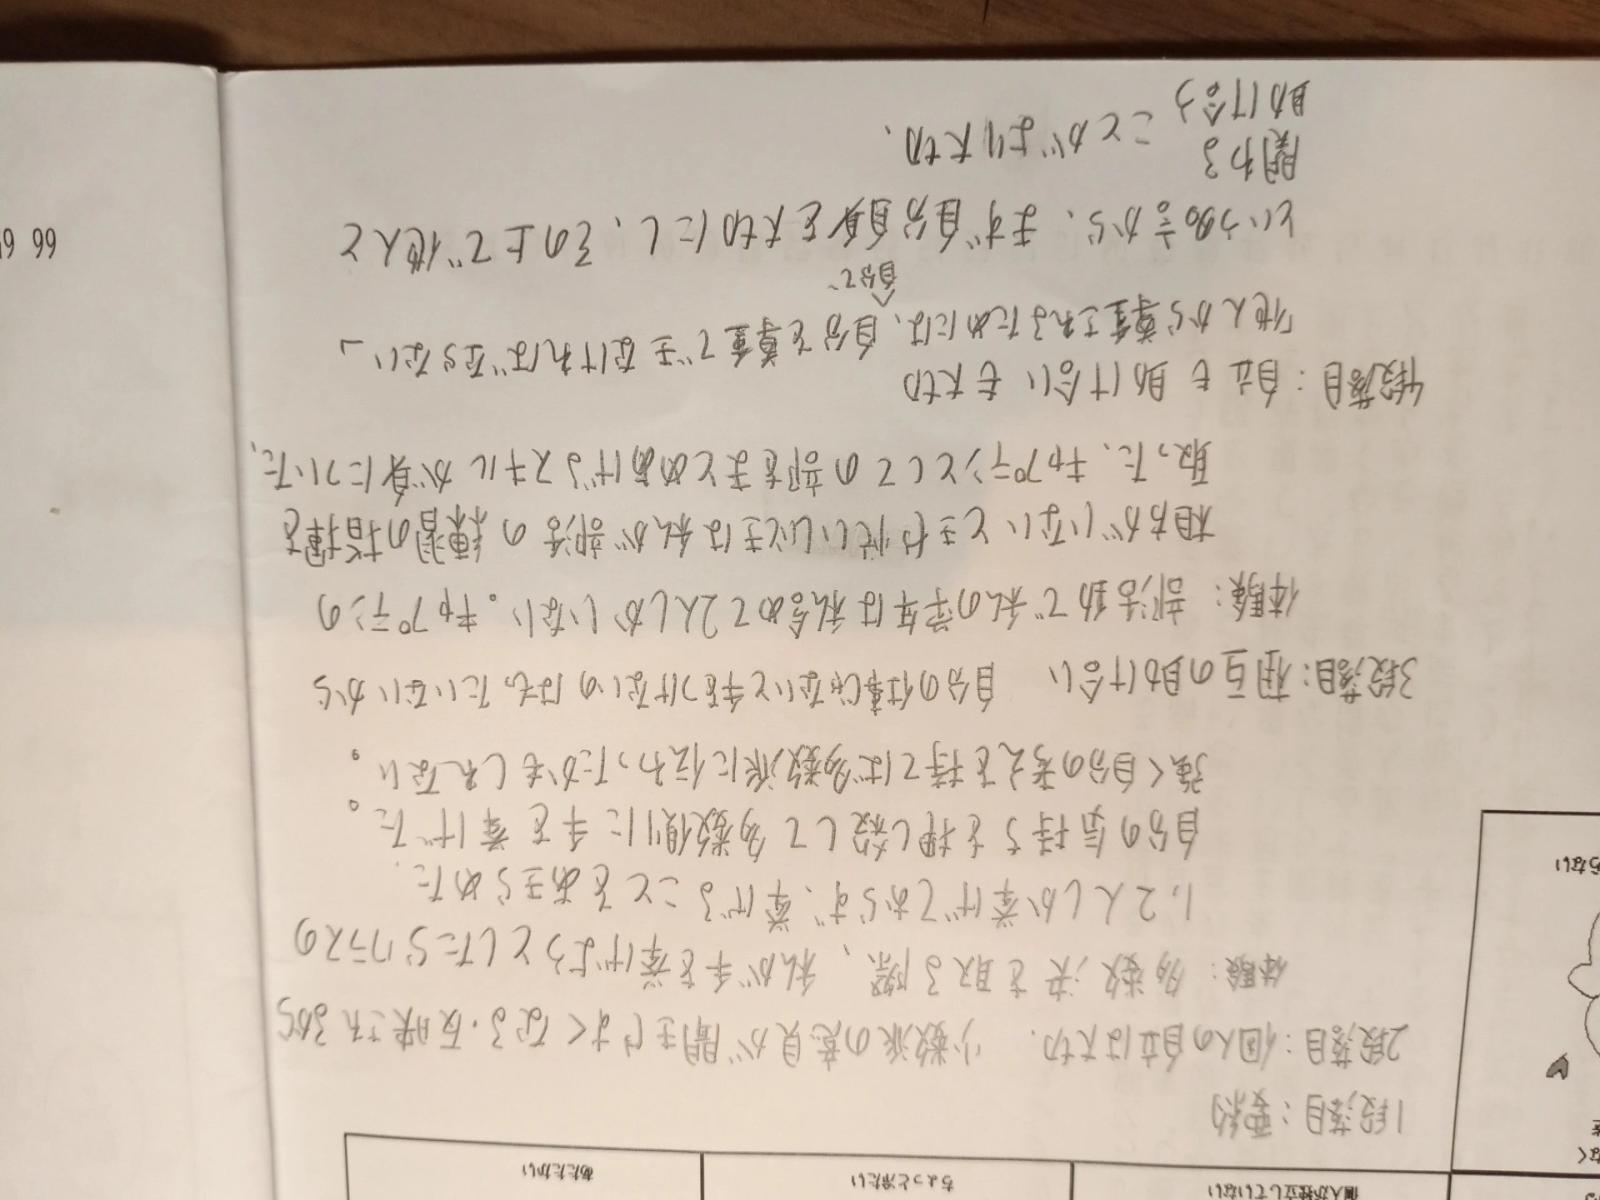 あたたかい
ちょっと冷たい
個人が独立していない
1段落目：要約
2段落目：個人の自立は大切. 少数派の意見が聞きやすくなる・反映されるから
体験：多数決を取る際、私が手を挙げようとしたらクラスの
1,2人しか挙げておらず、挙げることをあきらめた.
自分の気持ちを押し殺して多数側に手を挙げた。
強く自分の考えを持てば多数派に伝わったかもしれない。
3段落目：相互の助け合い 自分の仕事じゃないと手をつけないのはもったいないから
体験：部活動で私の学年は私含めて2人しかいない。キャプテンの
相方がいないときや忙しいときは私が部活の練習の指揮を
取った、キャプテンとしての部をまとめあげるスキルが身についた.
4段落目：自立も助け合いも大切
「他人から尊重されるためには、自分を尊重できなければならない」
自分で、
という名言から、まず自分自身を大切にし、その上で他人と
関わる
助け合う
ことがより大切.
66